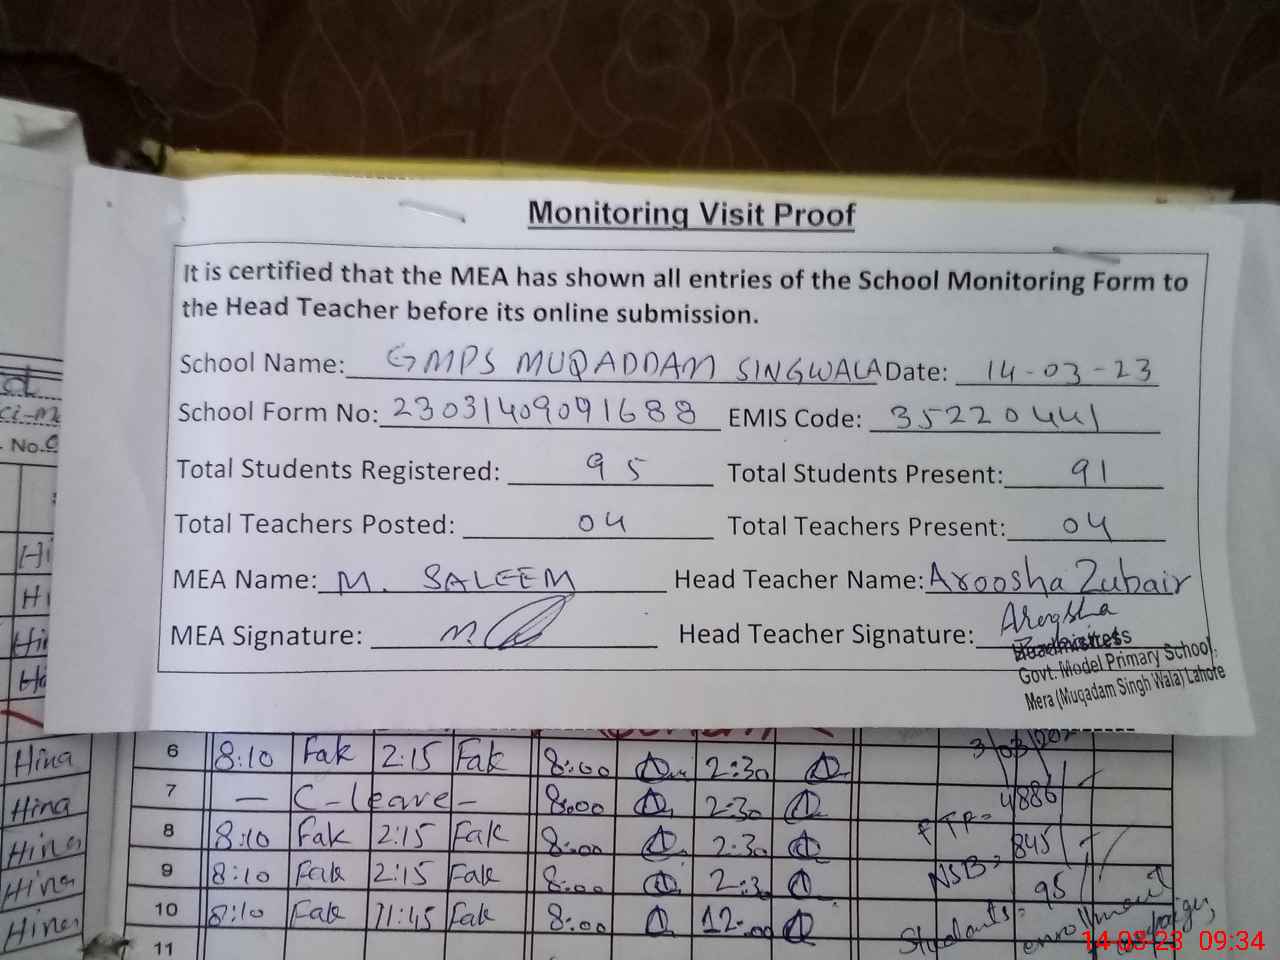 Monitoring Visit Proof
It is certified that the MEA has shown all entries of the School Monitoring Form to
the Head Teacher before its online submission.
School Name: GMPS MUQADDAM SINGWALA Date: 14-03-23
School Form No: 23031409091688 EMIS Code: 35220441
Total Students Registered: 95 Total Students Present: 91
Total Teachers Posted: 04 Total Teachers Present: 04
MEA Name: M. SALEEM Head Teacher Name: Aroosha Zubair
MEA Signature: Head Teacher Signature: Aroosha
Headmistress
Govt. Model Primary School,
Mera (Muqadam Singh Wala) Lahore
No.
6 8:10 Fak 2:15 Fak 8:00 2:30
7 - C-leave - 8:00 2:30
8 8:10 Fak 2:15 Fak 8:00 2:30
9 8:10 Fak 2:15 Fak 8:00 2:3
10 8:10 Fak 11:45 Fak 8:00 12:00
11
Hina
Hina
Hina
Hina
Hina
4886
FTF=
845
NSB=
95
Students=
enrollment
14-03-23 09:34